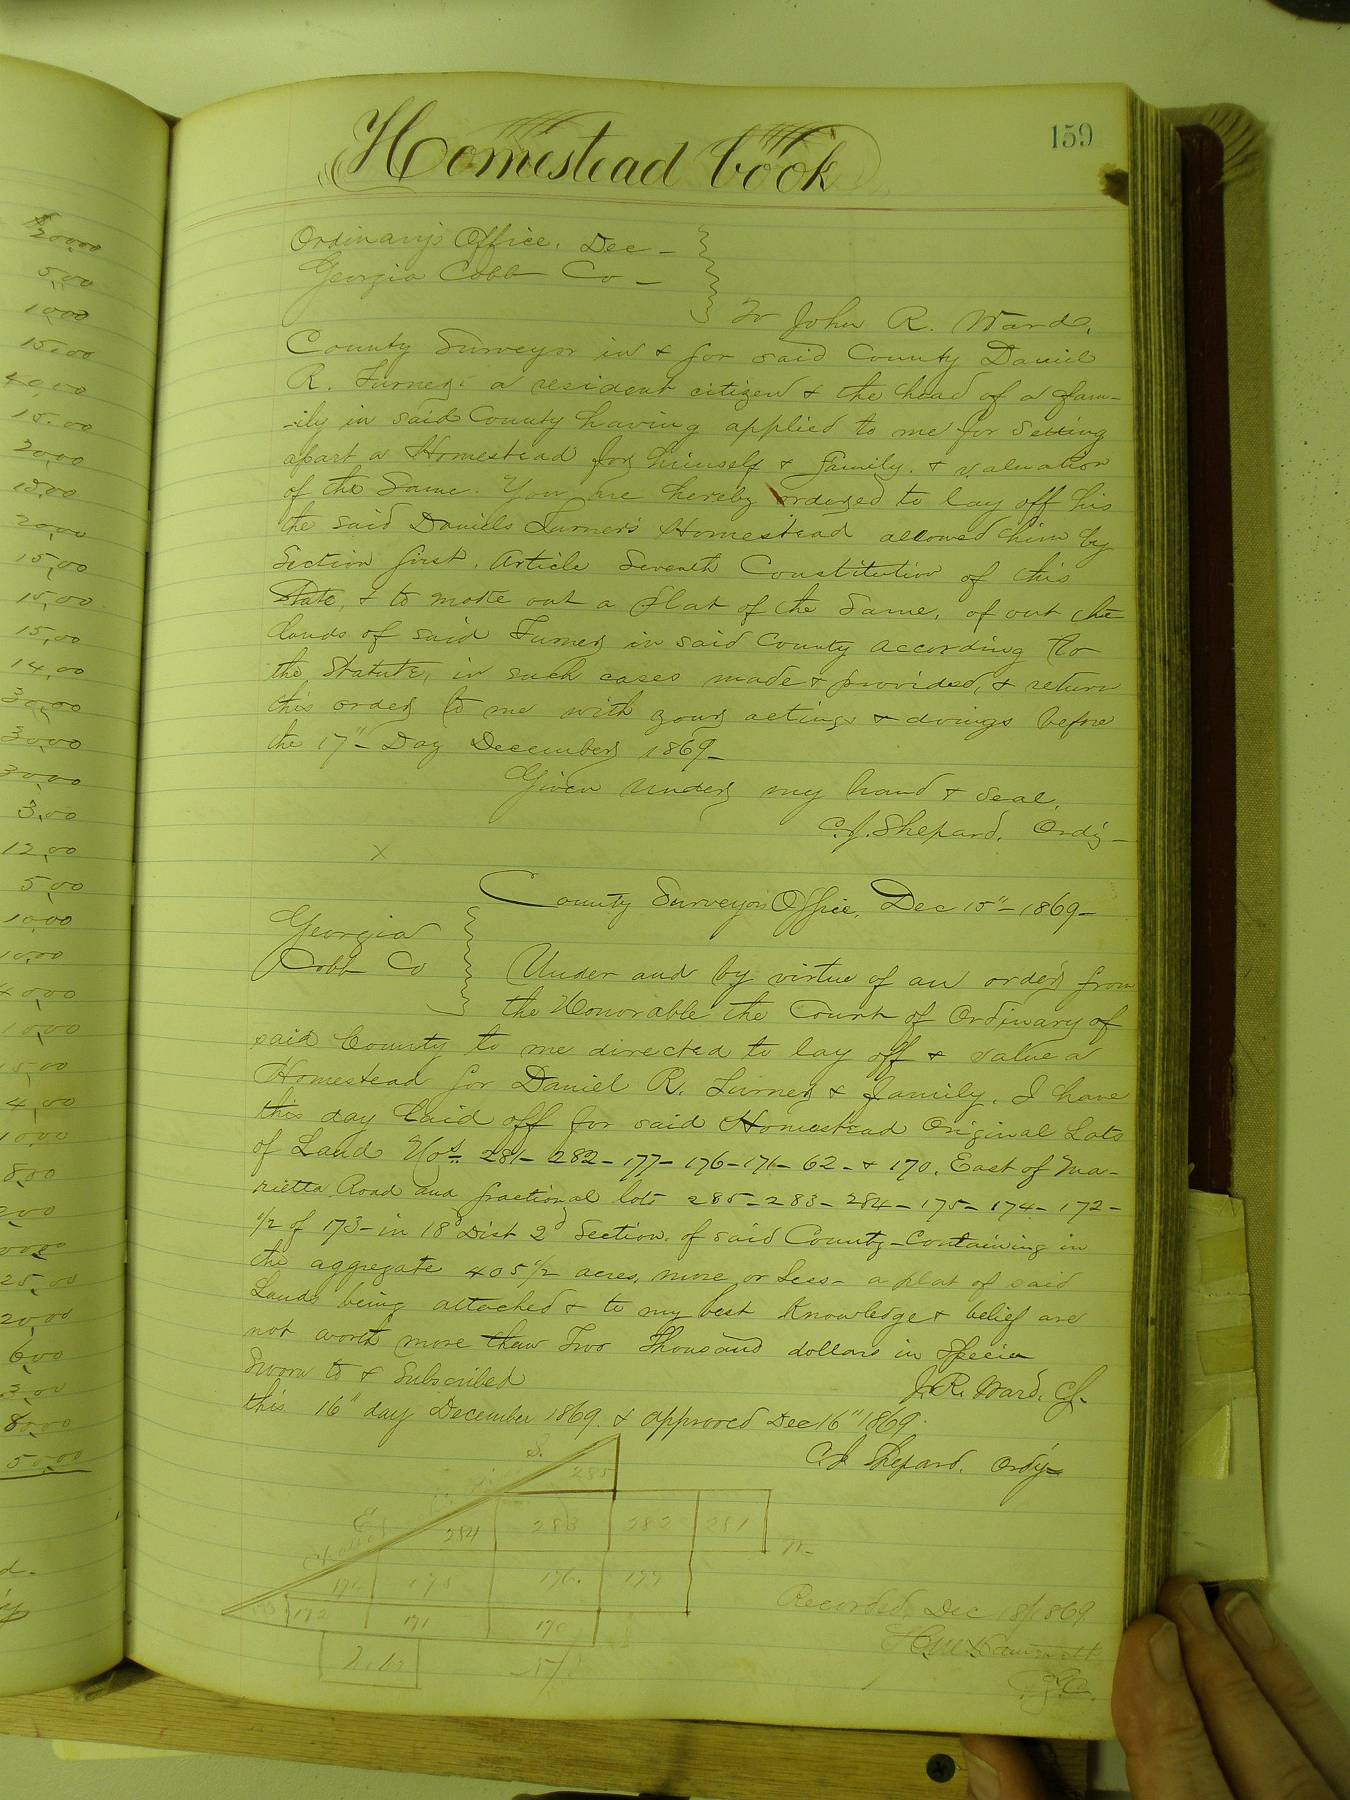 Homestead book
159
Ordinary's Office, Dec -
Georgia Cobb Co -
To John R. Ward,
County Surveyor in & for said County Daniel
R. Turner, a resident citizen & the head of a fam-
-ily in said County having applied to me for setting
apart a Homestead for himself & family. & valuation
of the Same. You are hereby ordered to lay off his
the said Daniels Turner's Homestead allowed him by
Section first, Article Seventh Constitution of this
State, & to make out a plat of the Same, of out the
lands of said Turner in said County according to
the Statute, in such cases made & provided, & return
this order to me with your actings & doings before
the 17" - Day December 1869 -
Given under my hand & Seal,
C.J. Shepard, Ordy -
x
County Surveyors Office, Dec 15" - 1869 -
Georgia
Cobb Co
Under and by virtue of an order from
the Honorable the Court of Ordinary of
said County to me directed to lay off & value a
Homestead for Daniel R. Turner & family, I have
this day laid off for said Homestead Original Lots
of Land Nos. 281 - 282 - 177 - 176 - 171 - 62 - & 170, East of Ma-
rietta Road and fractional lots 285 - 283 - 284 - 175 - 174 - 172 -
1/2 of 173 - in 18 Dist 2d Section, of said County - Containing in
the aggregate 405 1/2 acres, more or less - a plat of said
Lands being attached & to my best Knowledge & belief are
not worth more than Two Thousand dollars in Specie
Sworn to & Subscribed
J.R. Ward, CS.
this 16" day December 1869 & approved Dec 16" 1869.
C J Shepard, Ordy -
S.
285
E
284
283
282
281
174
175
176
177
172
171
170
Recorded Dec 18/1869
$20,00
5,00
10,00
15,00
40,00
15,00
20,00
10,00
20,00
15,00
15,00
15,00
14,00
30,00
30,00
30,00
3,00
12,00
5,00
10,00
10,00
10,00
4,00
10,00
8,00
25,00
20,00
6,00
3,00
80,00
50,00